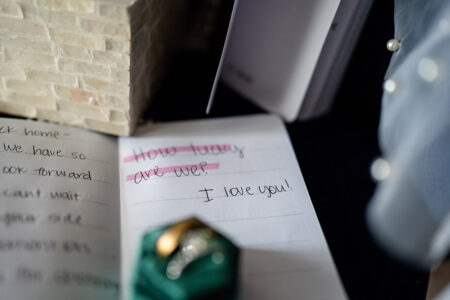 ck home-
we have so
look forward
cant wait
your side
How lucky
are we?
I love you!